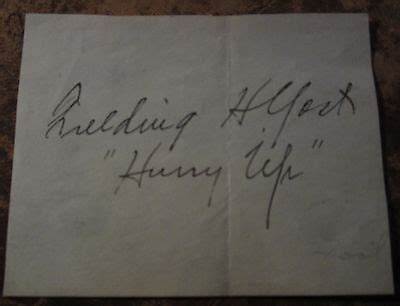 Fielding H Yost
"Hurry Up"
Yost